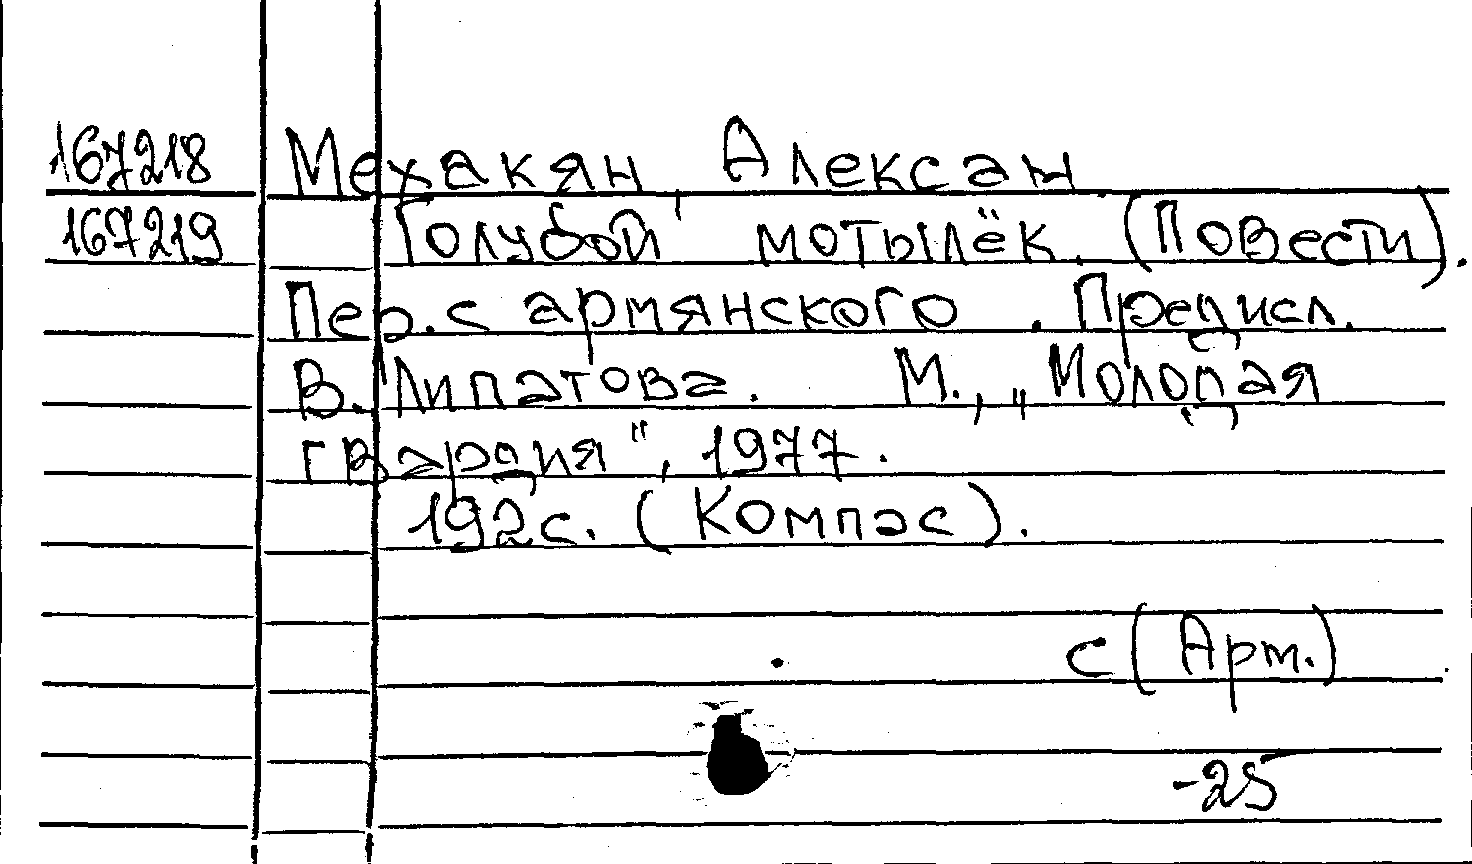 167218 Мехакян, Алексан.
167219 Голубой мотылёк. (Повести).
Пер. с армянского. Предисл.
В. Липатова. М., „Молодая
гвардия", 1977.
192 с. (Компас).
С (Арм.)
-25